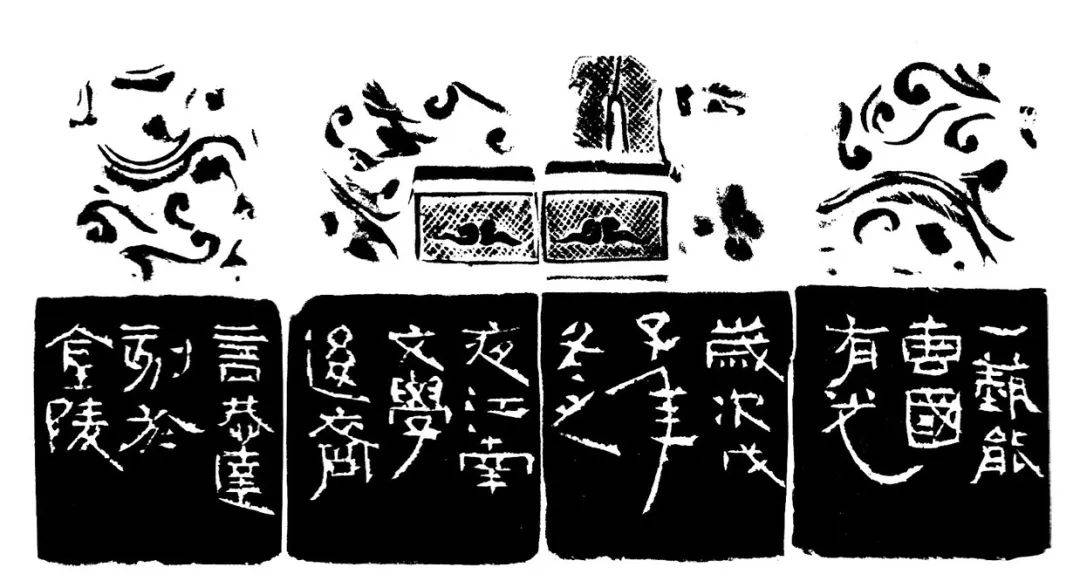 一藝能
專國
有光
歲次戊
子年
冬之
夜江南
文學
齋
言恭達
刻於
金陵